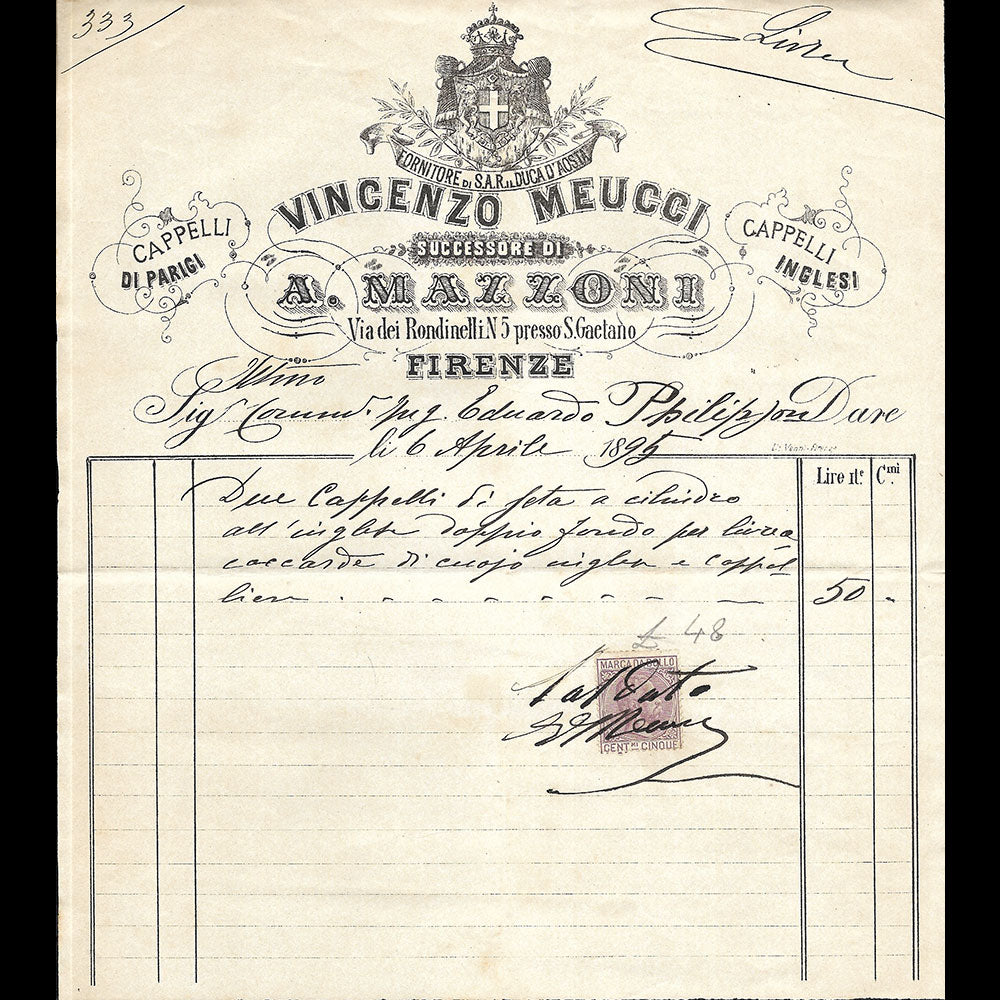 333
Livrea
FORNITORE DI S.A.R. IL DUCA D'AOSTA
VINCENZO MEUCCI
SUCCESSORE DI
A. MAZZONI
CAPPELLI
DI PARIGI
CAPPELLI
INGLESI
Via dei Rondinelli N 5 presso S. Gaetano
FIRENZE
Illmo
Sigr Commr. Ing. Eduardo Philipson Dare
li 6 Aprile 1895
Lire It.e Cmi.
Due Cappelli di seta a cilindro
all'inglese doppio fondo per livrea
coccarde di cuojo inglese e cappel-
liere 50 "
£ 48
MARCA DA BOLLO
Saldato
V Meucci
CENT.MI CINQUE